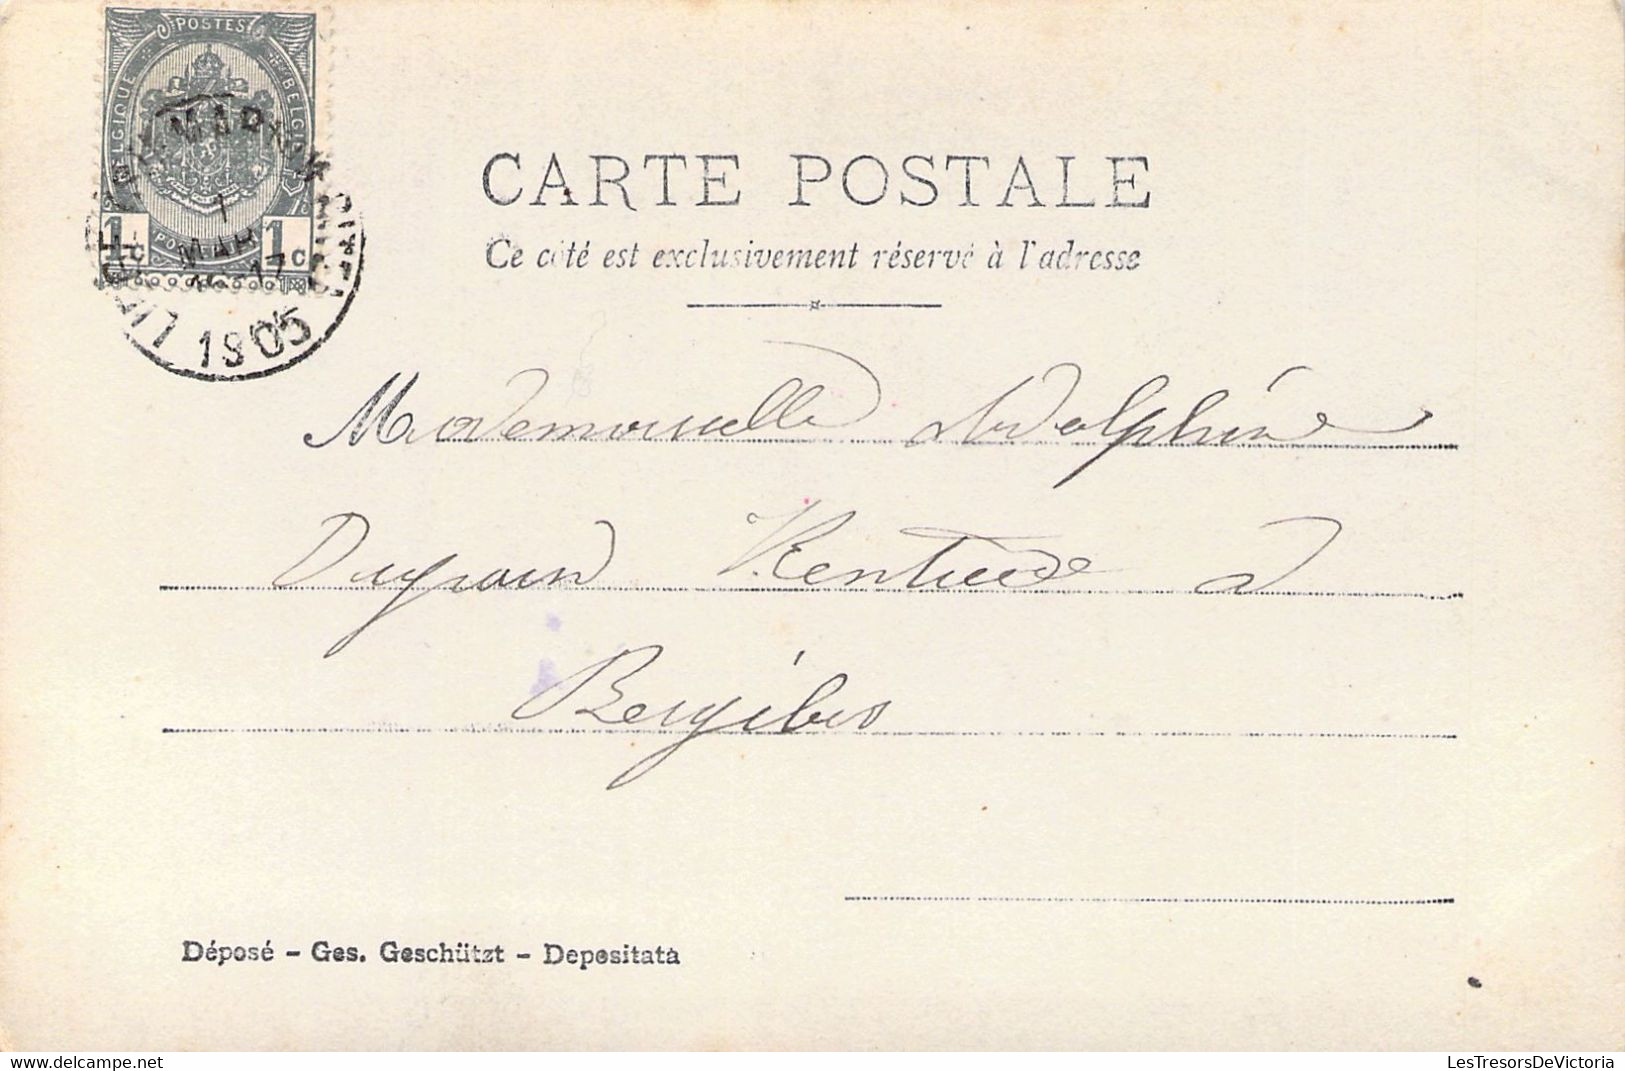 POSTES
BELGIQUE BELGIË
1c 1c
MAR
1905
CARTE POSTALE
Ce côté est exclusivement réservé à l'adresse
Mademoiselle Adolphine
Dugrain Rentière à
Déposé - Ges. Geschützt - Depositata
LesTresorsDeVictoria